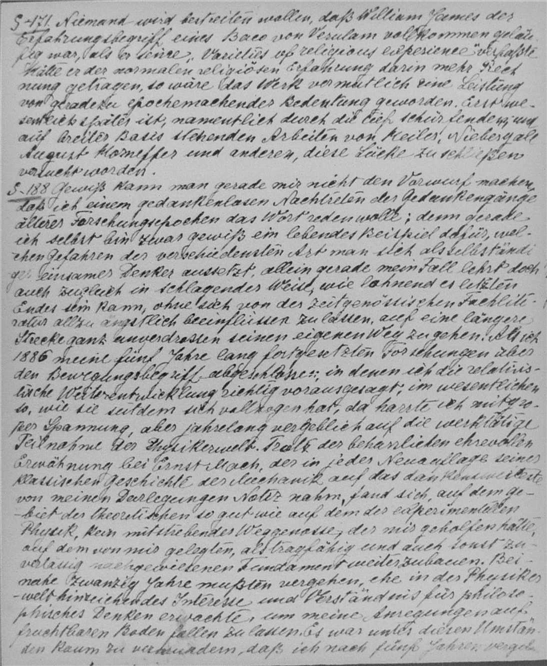 S-171. Niemand wird bestreiten wollen, daß William James der
Erfahrungsbegriff eines Baco von Verulam vollkommen geläu-
fig war, als er seine „Varieties of religious experience" verfaßte.
Hätte er der normalen religiösen Erfahrung darin mehr Rech
nung getragen, so wäre das Werk vermutlich eine Leistung
von geradezu epochemachender Bedeutung geworden. Erst we-
sentlich später ist, namentlich durch die tief schürfenden, und
auf breiter Basis stehenden Arbeiten von Heiler, Niebergall
August Horneffer und anderen, diese Lücke zu schließen
versucht worden.
S-188 Gewiß kann man gerade mir nicht den Vorwurf machen,
daß ich einem gedankenlosen Nachtreten der Gedankengänge
älterer Forschungsepochen das Wort reden wolle; denn gerade
ich selbst bin zwar gewiß ein lebendes Beispiel dafür, wel-
chen Gefahren der verschiedensten Art man sich als selbständi
ger einsamer Denker aussetzt, allein gerade mein Fall lehrt doch
auch zugleich in schlagender Weise, wie lohnend es letzten
Endes sein kann, ohne sich von der zeitgenössischen Fachlite-
ratur allzu ängstlich beeinflussen zu lassen, auf eine längere
Strecke ganz unverdrossen seinen eigenen Weg zu gehen. Als ich
1886 meine fünf Jahre lang fortgesetzten Forschungen über
den Bewegungsbegriff abgeschlossen, in denen ich die relativis-
tische Weiterentwicklung richtig vorausgesagt, im wesentlichen
so, wie sie seitdem sich vollzogen hat, da harrte ich mit gro-
ßer Spannung, aber jahrelang vergeblich auf die werktätige
Teilnahme der Physikerwelt. Trotz der beharrlichen ehrenvollen
Erwähnung bei Ernst Mach, der in jeder Neuauflage seiner
klassischen Geschichte der Mechanik auf das dankenswerteste
von meinen Darlegungen Notiz nahm, fand sich, auf dem ge-
biet der theoretischen so gut wie auf dem der experimentellen
Physik, kein mitstrebender Weggenosse, der mir geholfen hätte,
auf dem von mir gelegten, als tragfähig und auch sonst zu-
verlässig nachgewiesenen Fundament weiterzubauen. Bei-
nahe zwanzig Jahre mußten vergehen, ehe in der Physiker-
welt hinreichendes Interesse und Verständnis für philoso-
phisches Denken erwachte, um meine Anregungen auf
fruchtbaren Boden fallen zu lassen. Es war unter diesen Umstän-
den kaum zu verwundern, daß ich nach fünf Jahren vergeb